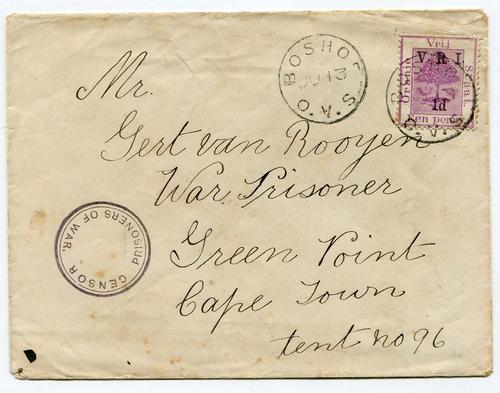 BOSHOF
JU 13
A.O.S.
Vrij
Oranje Staat
V.R.I.
1d
Een penny
Mr.
Gert van Rooyen
War Prisoner
Green Point
Cape Town
tent no 96
CENSOR
PRISONERS OF WAR.